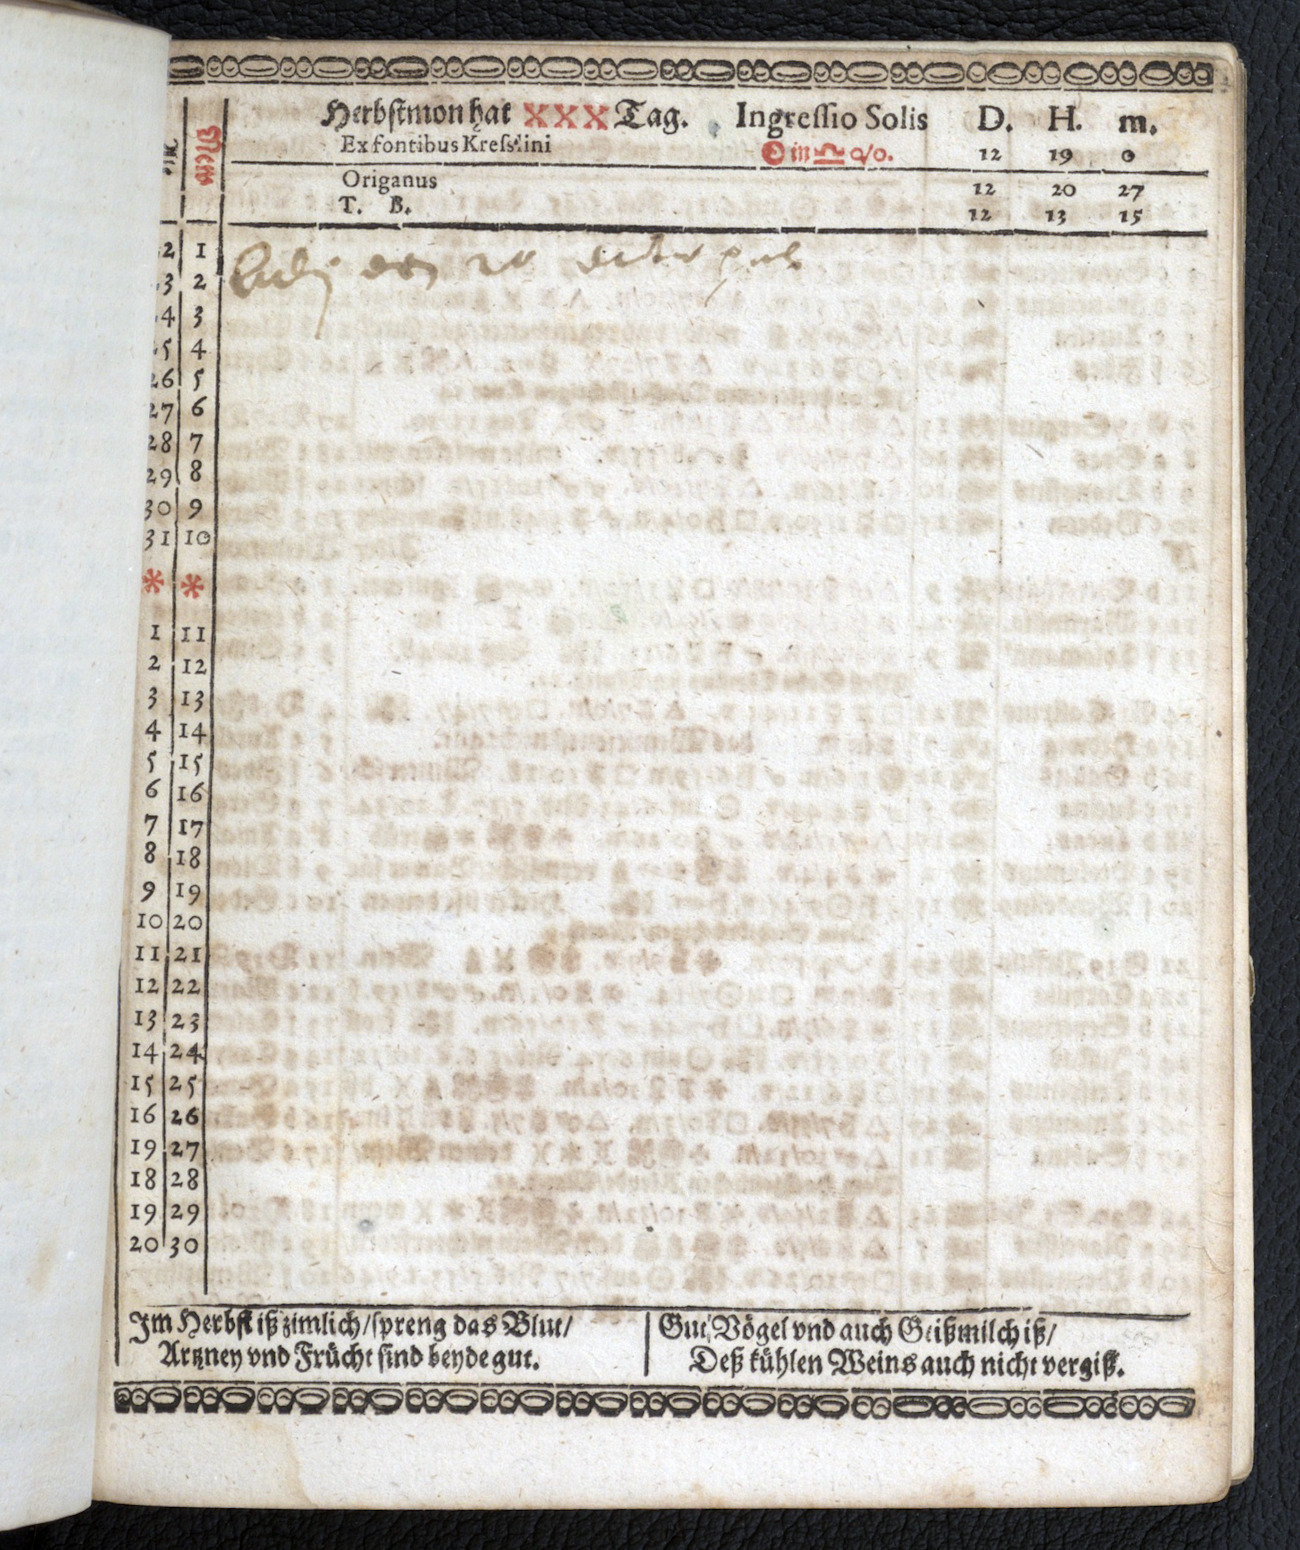 Herbstmon hat XXX Tag. Ingressio Solis D. H. m.
Ex fontibus Kresslini ☉ in ♎ 0/0. 12 19 0
Origanus 12 20 27
T. B. 12 13 15
New
22 1
23 2
24 3
25 4
26 5
27 6
28 7
29 8
30 9
31 10
* *
1 11
2 12
3 13
4 14
5 15
6 16
7 17
8 18
9 19
10 20
11 21
12 22
13 23
14 24
15 25
16 26
19 27
18 28
19 29
20 30
Im Herbst iß zimlich/spreng das Blut/
Artzney vnd Frücht sind beyde gut.
Gut Vögel vnd auch Geißmilch iß/
Deß kühlen Weins auch nicht vergiß.